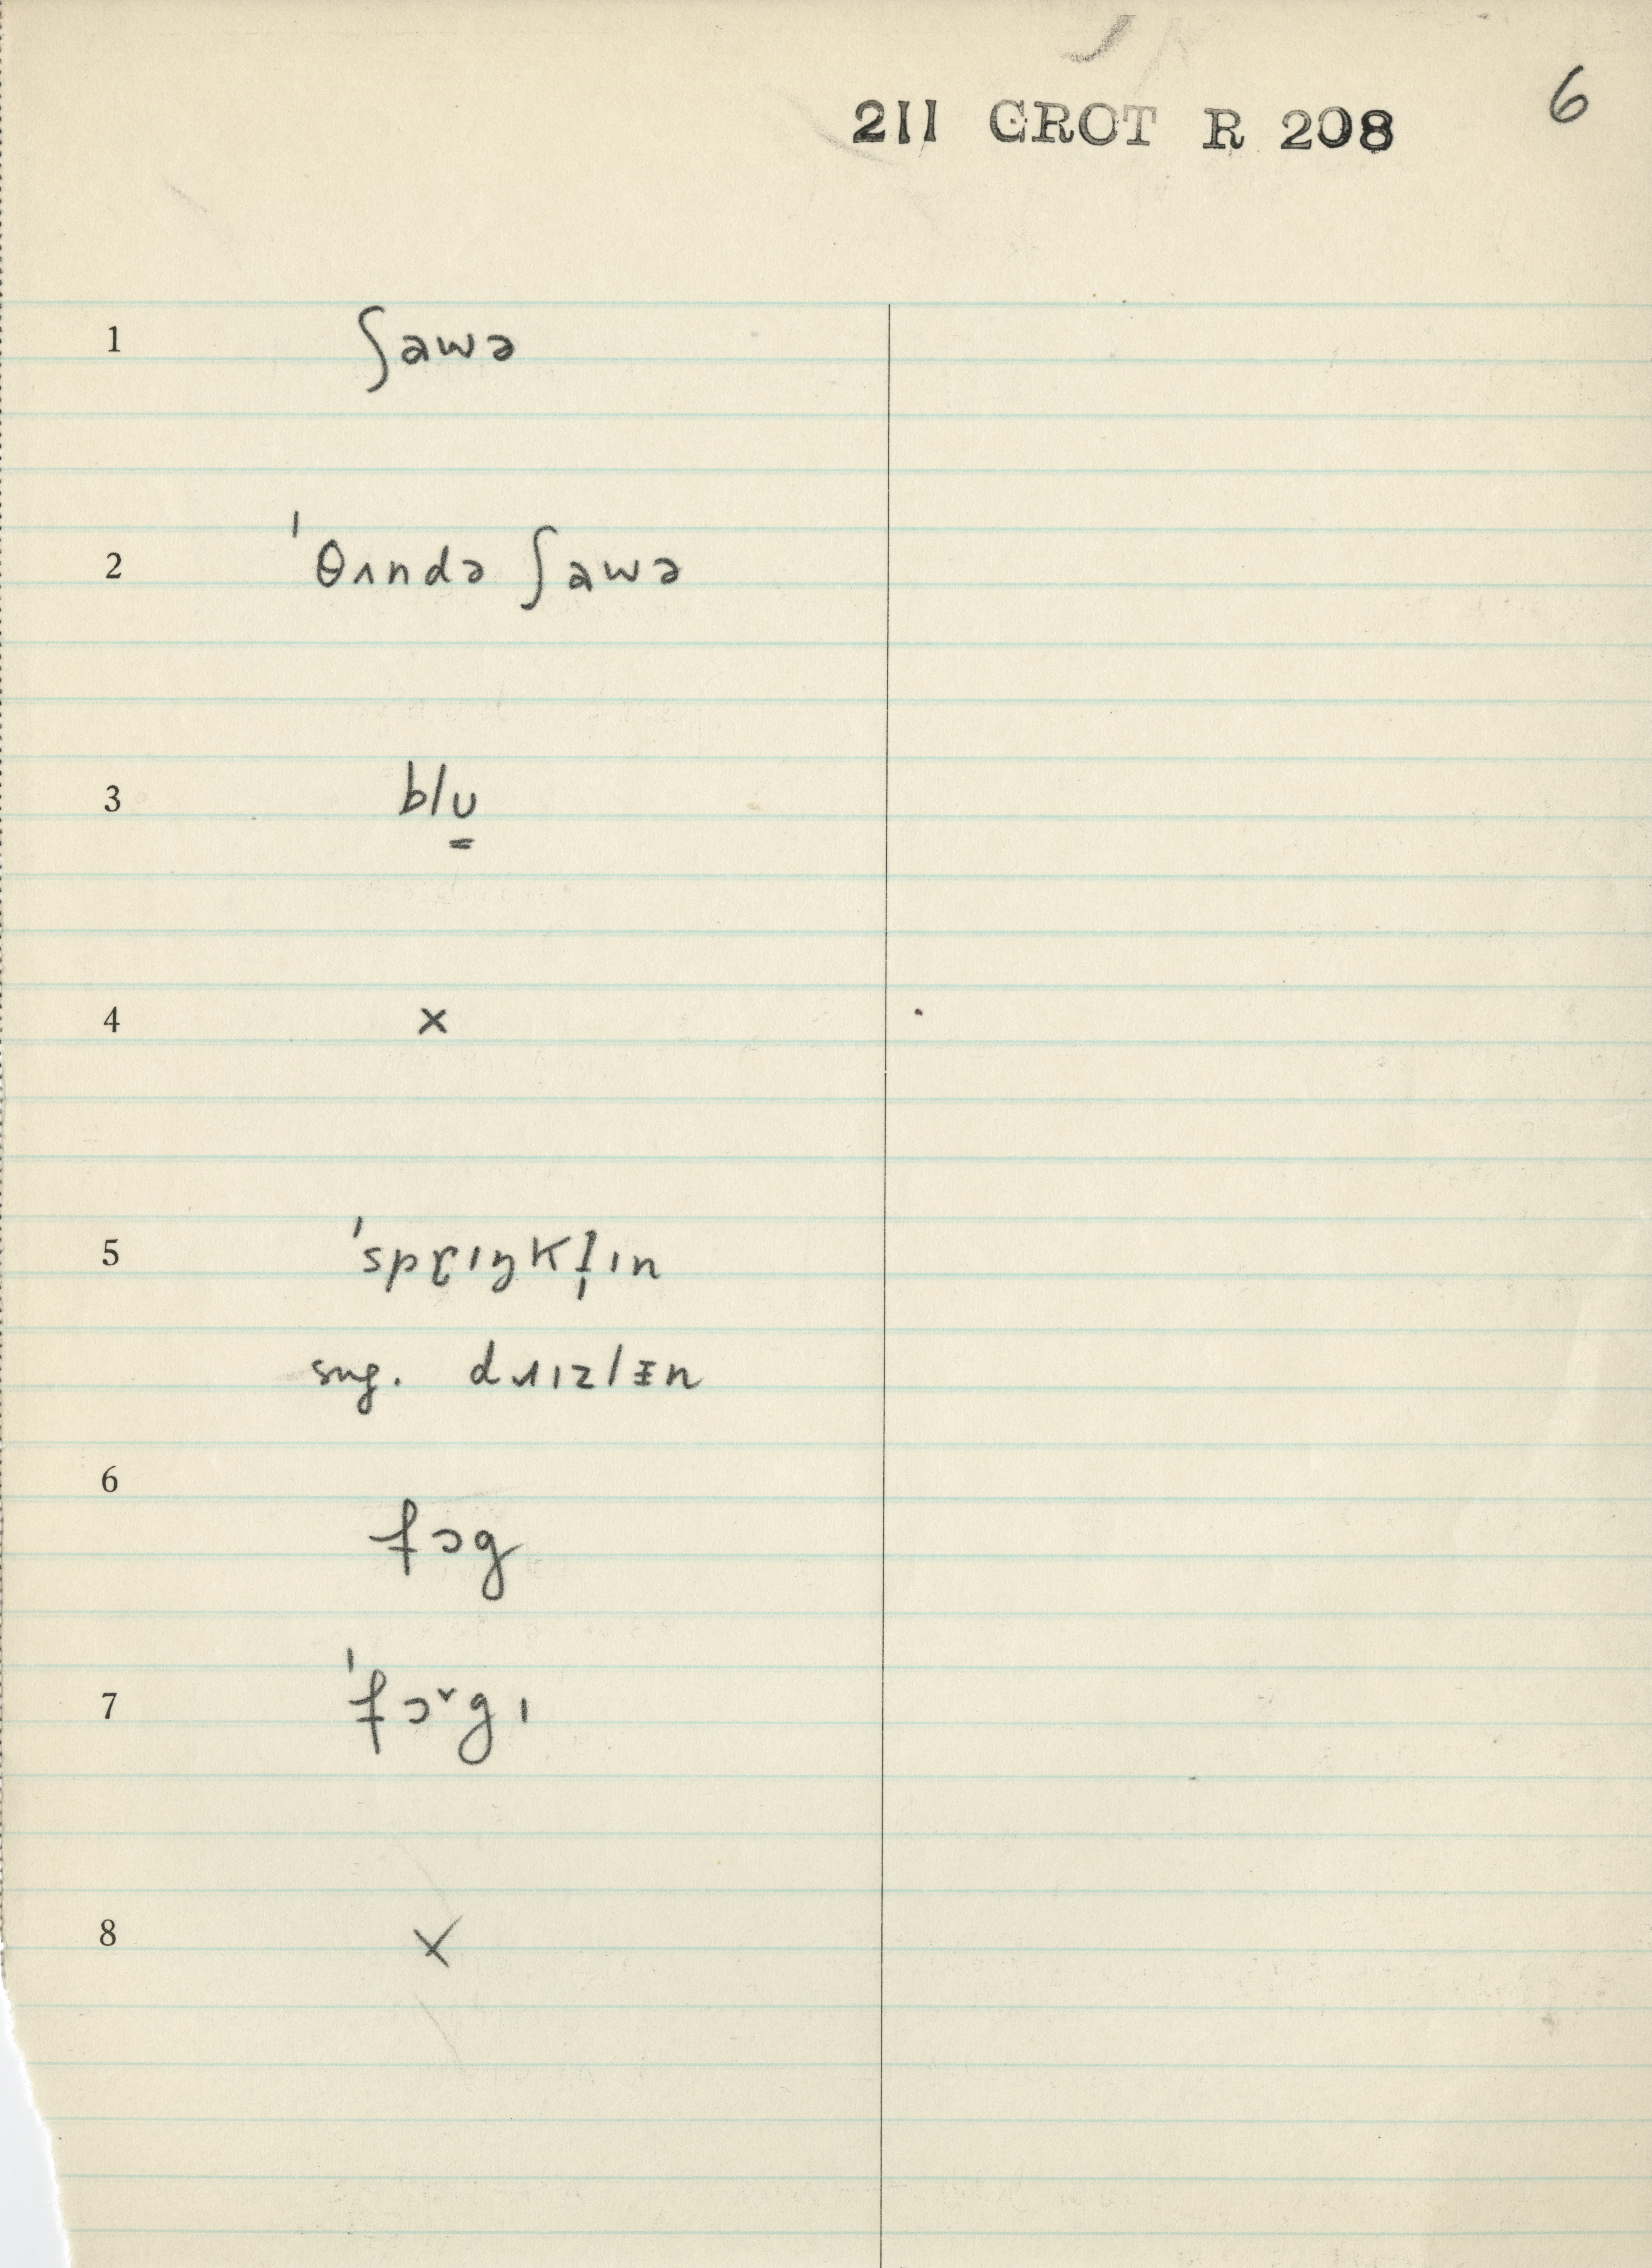 211 GROT R 208 6
1 ʃawə
2 ˈθʌndə ʃawə
3 blu̳
4 ×
5 ˈsprɪŋkl̩ɪn
sug. dɹɪzlɪn
6 fɔg
7 ˈfɔ˅gɪ
8 ×